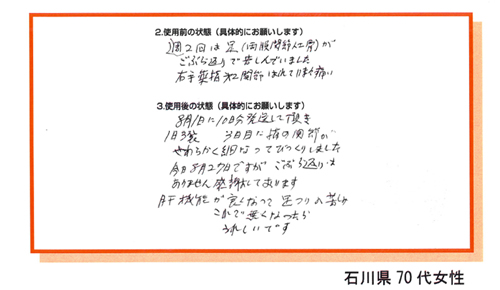 2.使用前の状態（具体的にお願いします）
週2回は足（両股関節人工骨）が
こぶら返りで苦しんでいました
右手薬指第2関節はれていて痛い
3.使用後の状態（具体的にお願いします）
8月1日に10日分発送して頂き
1日3袋 3日目に指の関節が
やわらかく細なってびっくりしました
今日8月27日ですが こぶら返りは
ありません感謝しております
肝機能が良くなって足つりの苦しみ
これで無くなったら
うれしいです
石川県 70 代女性